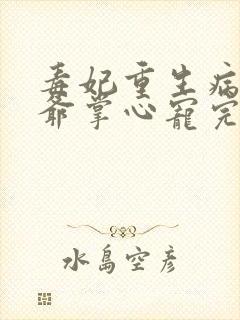 毒妃重生病
爺掌心寵完
水島空彥